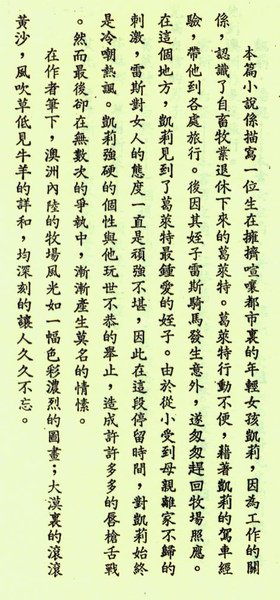 本篇小說係描寫一位生在擁擠喧嚷都市裏的年輕女孩凱莉，因為工作的關
係，認識了自畜牧業退休下來的葛萊特。葛萊特行動不便，藉著凱莉的駕車經
驗，帶他到各處旅行。後因其姪子雷斯騎馬發生意外，遂匆匆趕回牧場照應。
在這個地方，凱莉見到了葛萊特最鍾愛的姪子。由於從小受到母親離家不歸的
刺激，雷斯對女人的態度一直是頑強不堪，因此在這段停留時間，對凱莉始終
是冷嘲熱諷。凱莉強硬的個性與他玩世不恭的舉止，造成許許多多的唇槍舌戰
。然而最後卻在無數次的爭執中，漸漸產生莫名的情愫。
在作者筆下，澳洲內陸的牧場風光如一幅色彩濃烈的圖畫；大漠裏的滾滾
黃沙，風吹草低見牛羊的詳和，均深刻的讓人久久不忘。